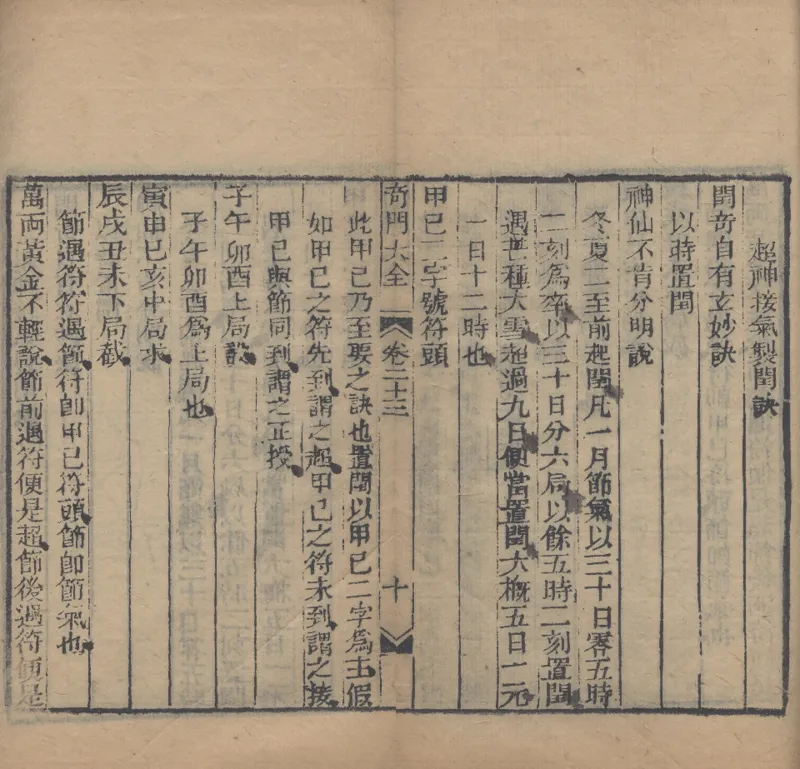 超神接氣製閏訣
閏奇自有玄妙訣
以時置閏
神仙不肯分明說
冬夏二至前起閏凡一月節氣以三十日零五時
二刻爲率以三十日分六局以餘五時二刻置閏
遇芒種大雪超過九日便當置閏大概五日一元
一日十二時也
甲己二字號符頭
奇門大全 卷二十三 十
此甲己乃至要之訣也置閏以甲己二字爲主假
如甲己之符先到謂之超甲己之符未到謂之接
甲己與節同到謂之正授
子午卯酉上局設
子午卯酉爲上局也
寅申巳亥中局求
辰戌丑未下局截
節遇符符遇節符卽甲己符頭節卽節氣也
萬両黃金不輕說節前遇符便是超節後遇符便是